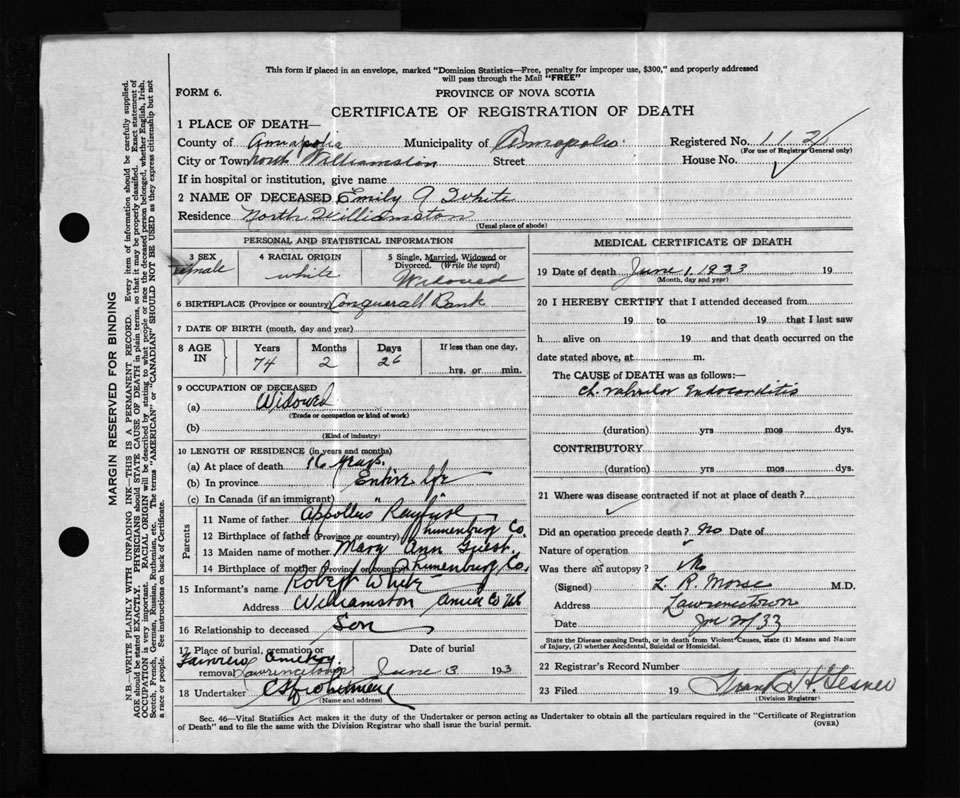 This form if placed in an envelope, marked "Dominion Statistics—Free, penalty for improper use, $300," and properly addressed
will pass through the Mail "FREE"
FORM 6.
PROVINCE OF NOVA SCOTIA
CERTIFICATE OF REGISTRATION OF DEATH
1 PLACE OF DEATH—
County of Annapolis Municipality of Annapolis Registered No.
(For use of Registrar General only)
City or Town North Williamston Street House No.
If in hospital or institution, give name
2 NAME OF DECEASED Emily A White
Residence North Williamston
(Usual place of abode)
PERSONAL AND STATISTICAL INFORMATION
3 SEX 4 RACIAL ORIGIN 5 Single, Married, Widowed or
Divorced. (Write the word)
female white Widowed
6 BIRTHPLACE (Province or country) Conquerall Bank
7 DATE OF BIRTH (month, day and year)
8 AGE IN Years Months Days If less than one day,
74 2 26 hrs. or min.
9 OCCUPATION OF DECEASED
(a) Widowed
(Trade or occupation or kind of work)
(b)
(Kind of industry)
10 LENGTH OF RESIDENCE (in years and months)
(a) At place of death 16 years.
(b) In province Entire life
(c) In Canada (if an immigrant) "
Parents
11 Name of father Appollus
12 Birthplace of father (Province or country) Lunenburg Co.
13 Maiden name of mother Mary Ann
14 Birthplace of mother (Province or country) Lunenburg, Co.
15 Informant's name Robert White
Address Williamston
16 Relationship to deceased Son
17 Place of burial, cremation or Date of burial
removal Lawrencetown June 3 1933
18 Undertaker
(Name and address)
MEDICAL CERTIFICATE OF DEATH
19 Date of death June 1, 1933 19
(Month, day and year)
20 I HEREBY CERTIFY that I attended deceased from
19 to 19 that I last saw
h alive on 19 and that death occurred on the
date stated above, at m.
The CAUSE of DEATH was as follows:—
Ch. valvular Endocarditis
(duration) yrs mos dys.
CONTRIBUTORY
(duration) yrs. mos. dys.
21 Where was disease contracted if not at place of death?
Did an operation precede death? No Date of
Nature of operation
Was there an autopsy? No
(Signed) L. R. Morse M.D.
Address Lawrencetown
Date
State the Disease causing Death, or in death from Violent Causes, state (1) Means and Nature
of Injury, (2) whether Accidental, Suicidal or Homicidal.
22 Registrar's Record Number
23 Filed 19 Frank H Gesner
(Division Registrar)
Sec. 46—Vital Statistics Act makes it the duty of the Undertaker or person acting as Undertaker to obtain all the particulars required in the "Certificate of Registration
of Death" and to file the same with the Division Registrar who shall issue the burial permit.
(OVER)
MARGIN RESERVED FOR BINDING
N.B.—WRITE PLAINLY WITH UNFADING INK—THIS IS A PERMANENT RECORD. Every item of information should be carefully supplied.
AGE should be stated EXACTLY. PHYSICIANS should STATE CAUSE OF DEATH in plain terms, so that it may be properly classified. Exact statement of
OCCUPATION is very important. RACIAL ORIGIN will be described by stating to what people or race the deceased person belonged, whether English, Irish,
Scotch, French, German, Russian, Ruthenian, etc. The terms "AMERICAN" or "CANADIAN" SHOULD NOT BE USED as they express citizenship but not
a race or people. See instructions on back of Certificate.